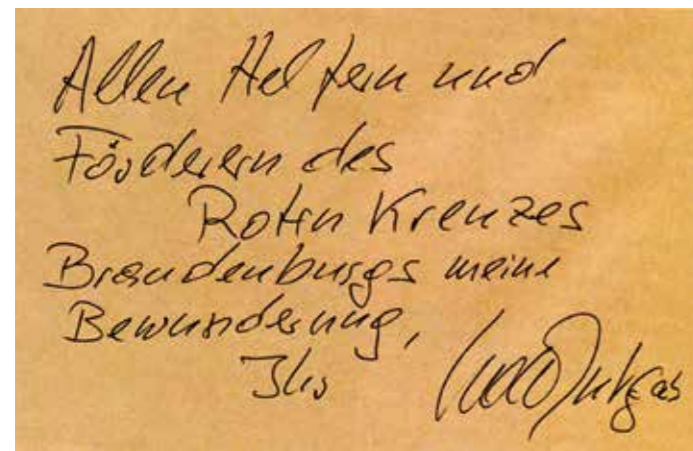 Allen Helfern und
Förderern des
Roten Kreuzes
Brandenburgs meine
Bewunderung,
Ihr